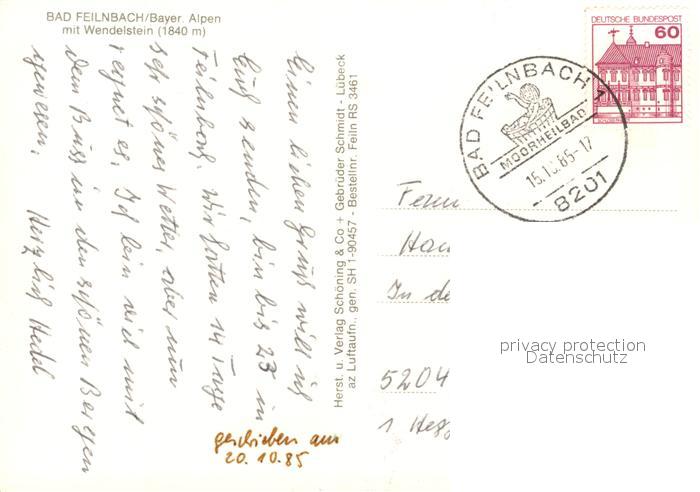 BAD FEILNBACH/Bayer. Alpen
mit Wendelstein (1840 m)
Einen lieben Gruß will ich
Euch senden, bin bis 23 in
Feilenbach. Wir hatten 14 Tage
sehr schönes Wetter, aber nun
regnet es. Ich bin viel mit
dem Bus in den schönen Bergen
gewesen. Herzlich Hedel
geschrieben am
20.10.85
Herst. u. Verlag Schöning & Co + Gebrüder Schmidt - Lübeck
az Luftaufn., gen. SH 1-90457 - Bestellnr. Feiln RS 3461
DEUTSCHE BUNDESPOST
60
BAD FEILNBACH 1
MOORHEILBAD
85-17
8201
In de
5204
privacy protection
Datenschutz